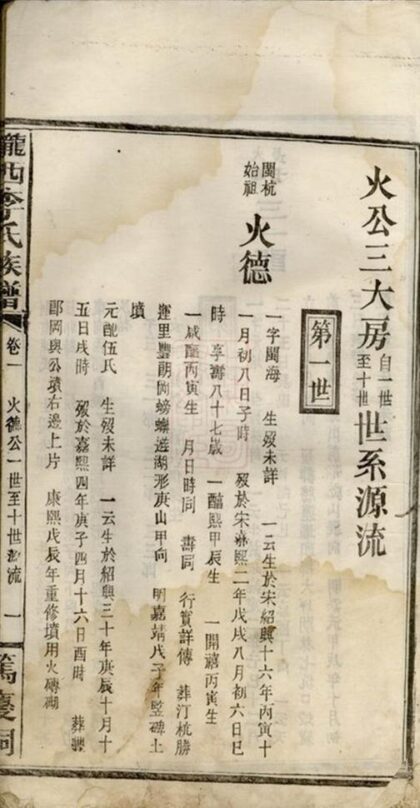 火公三大房自一世至十世世系源流
第一世
閩杭始祖
火德
一字閩海 生歿未詳 一云生於宋紹興十六年丙寅十
一月初八日子時 歿於宋嘉熙二年戊戌八月初六日巳
時 享壽八十七歲 一醮熙甲辰生 一開禧丙寅生
一咸醮丙寅生 月日時同 壽同 行實詳傳 葬汀杭勝
運里豐朗岡螃蟹遊湖形庚山甲向 明嘉靖戊子年豎碑土
墳
元配伍氏 生歿未詳 一云生於紹興三十年庚辰十月十
五日戌時 歿於嘉熙四年庚子四月十六日酉時 葬
郎岡與公墳右邊上片 康熙戊辰年重修墳用火磚砌
隴西李氏族譜 卷一 火德公一世至十世源流 一 篤慶祠